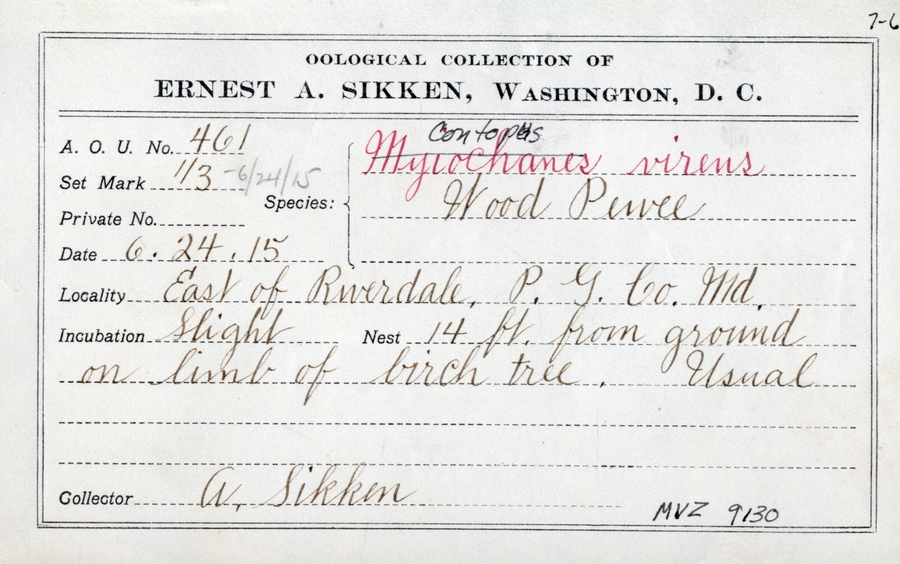 7-6
OOLOGICAL COLLECTION OF
ERNEST A. SIKKEN, WASHINGTON, D. C.
A. O. U. No. 461
Contopus
Myiochanes virens
Set Mark 1/3 -6/24/15
Species: Wood Pewee
Private No.
Date 6. 24. 15
Locality East of Riverdale, P. G. Co. Md.
Incubation Slight Nest 14 ft. from ground
on limb of birch tree. Usual
Collector A. Sikken
MVZ 9130